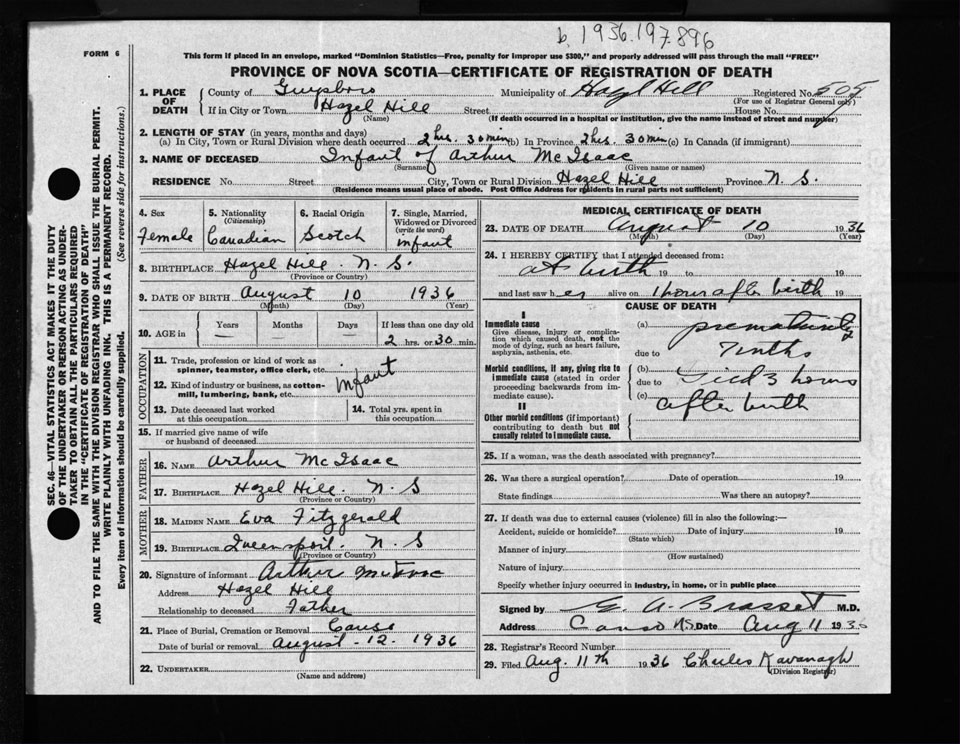 b. 1936.197.896
FORM 6
This form if placed in an envelope, marked "Dominion Statistics—Free, penalty for improper use $300," and properly addressed will pass through the mail "FREE"
PROVINCE OF NOVA SCOTIA—CERTIFICATE OF REGISTRATION OF DEATH
1. PLACE OF DEATH
County of Guysboro Municipality of Hazel Hill Registered No.
(For use of Registrar General only)
If in City or Town Hazel Hill Street House No.
(Name) (If death occurred in a hospital or institution, give the name instead of street and number)
2. LENGTH OF STAY (in years, months and days)
(a) In City, Town or Rural Division where death occurred 2 hrs. 30 min (b) In Province 2 hrs. 30 min (c) In Canada (if immigrant)
3. NAME OF DECEASED Infant of Arthur McIsaac
(Surname) (Given name or names)
RESIDENCE No. Street City, Town or Rural Division Hazel Hill Province N. S.
(Residence means usual place of abode. Post Office Address for residents in rural parts not sufficient)
4. Sex Female
5. Nationality (Citizenship) Canadian
6. Racial Origin Scotch
7. Single, Married, Widowed or Divorced (write the word) infant
8. BIRTHPLACE Hazel Hill. N. S.
(Province or Country)
9. DATE OF BIRTH August 10 1936
(Month) (Day) (Year)
10. AGE in Years Months Days If less than one day old
— — 2 hrs. or 30 min.
OCCUPATION
11. Trade, profession or kind of work as spinner, teamster, office clerk, etc.
12. Kind of industry or business, as cotton-mill, lumbering, bank, etc.
Infant
13. Date deceased last worked at this occupation
14. Total yrs. spent in this occupation
15. If married give name of wife or husband of deceased
FATHER
16. NAME Arthur McIsaac
17. BIRTHPLACE Hazel Hill. N. S
(Province or Country)
MOTHER
18. MAIDEN NAME Eva Fitzgerald
19. BIRTHPLACE Queensport. N. S
(Province or Country)
20. Signature of informant Arthur McIsaac
Address Hazel Hill
Relationship to deceased Father
21. Place of Burial, Cremation or Removal Canso
Date of burial or removal August - 12. 1936
22. UNDERTAKER
(Name and address)
MEDICAL CERTIFICATE OF DEATH
23. DATE OF DEATH August 10 1936
(Month) (Day) (Year)
24. I HEREBY CERTIFY that I attended deceased from:
at birth 19 to 19
and last saw her alive on 1 hour after birth 19
CAUSE OF DEATH
I
Immediate cause
Give disease, injury or complication which caused death, not the mode of dying, such as heart failure, asphyxia, asthenia, etc.
(a) prematurity
due to
Morbid conditions, if any, giving rise to immediate cause (stated in order proceeding backwards from immediate cause).
(b)
due to died 3 hours
(c) after birth
II
Other morbid conditions (if important) contributing to death but not causally related to immediate cause.
25. If a woman, was the death associated with pregnancy?
26. Was there a surgical operation? Date of operation 19
State findings Was there an autopsy?
27. If death was due to external causes (violence) fill in also the following:—
Accident, suicide or homicide? Date of injury 19
(State which)
Manner of injury
(How sustained)
Nature of injury
Specify whether injury occurred in industry, in home, or in public place
Signed by E. A. Brasset M.D.
Address Canso N.S. Date Aug 11 1936
28. Registrar's Record Number
29. Filed Aug. 11th 1936 Charles Kavanagh
(Division Registrar)
SEC. 46—VITAL STATISTICS ACT MAKES IT THE DUTY
OF THE UNDERTAKER OR PERSON ACTING AS UNDER-
TAKER TO OBTAIN ALL THE PARTICULARS REQUIRED
IN THE "CERTIFICATE OF REGISTRATION OF DEATH"
AND TO FILE THE SAME WITH THE DIVISION REGISTRAR WHO SHALL ISSUE THE BURIAL PERMIT.
WRITE PLAINLY WITH UNFADING INK. THIS IS A PERMANENT RECORD.
Every item of information should be carefully supplied. (See reverse side for instructions.)